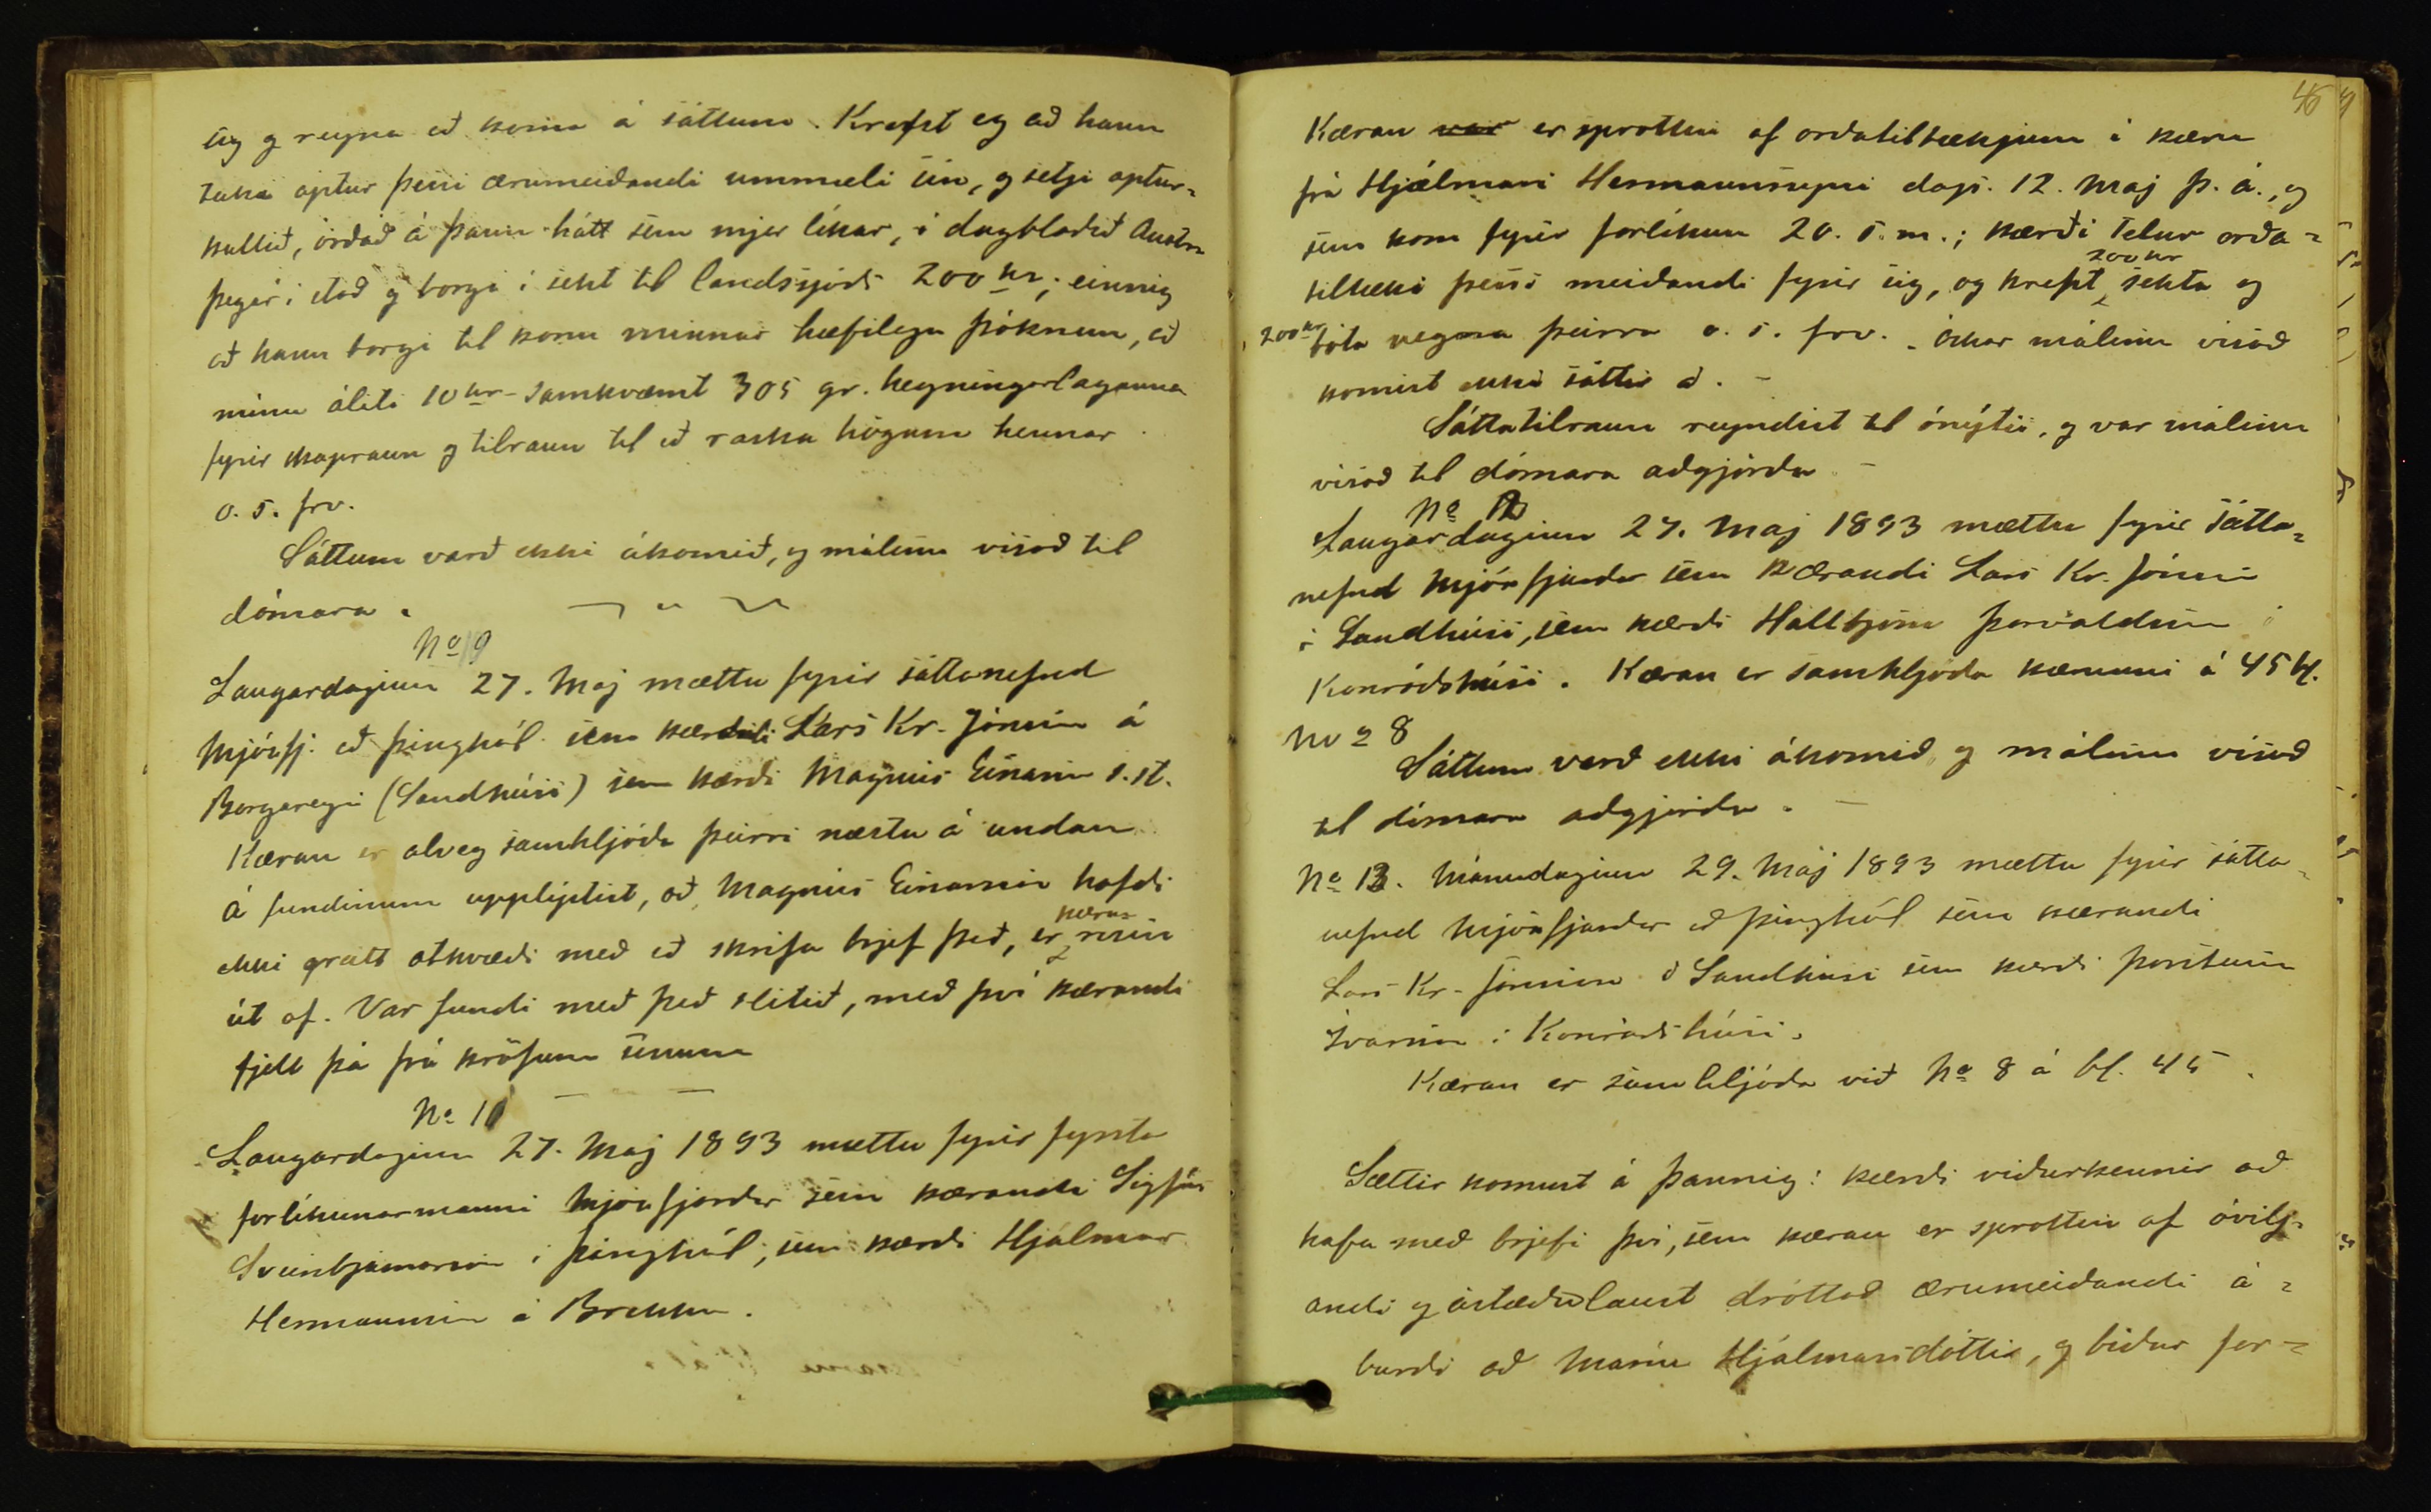 sig og reyna að koma á sáttum. Krefst eg að hann
taka aptur þessi ærumeiðandi ummæli sín, og setji aptur-
kallið, orðað á þann hátt sem mjer líkar, í dagblaðið Austra
þegar í stað og borgi í sekt til landssjóðs 200 kr; einnig
að hann borgi til konu minnar hæfilega þóknun, að
mínu áliti 10 kr - samkvæmt 305 gr. hegningarlaganna
fyrir skapraun og tilraun til að raska högum hennar
o. s. frv.
Sáttum varð ekki ákomið, og málinu vísað til
dómara.
No 9
Laugardaginn 27. Maj mættu fyrir sáttanefnd
Mjóafj. að Þinghól sem kærandi Lars Kr. Jónsson á
Borgareyri (Sandhúsi) sem kærði Magnús Einarsson s. st.
Kæran er alveg samhljóða þeirri næstu á undan
Á fundinum upplýstist, að Magnús Einarsson hafði
ekki greitt atkvæði með að skrifa brjef það, er kæran risin
út af. Var fundi með það slitið, með því kærandi
fjell þá frá kröfum sínum
No 10
Laugardaginn 27. Maj 1893 mættu fyrir fyrsta
forlíkunarmanni Mjóafjarðar sem kærandi Sigfús
Sveinbjarnarson í Þinghól, sem kærði Hjálmar
Hermannsson á Brekku.
46
Kæran var er sprottin af orðatiltækjum í kæru
frá Hjálmari Hermannssyni dags. 12. Maj þ. á., og
sem kom fyrir forlíkun 20. s. m.; kærði telur orða-
tiltæki þessi meiðandi fyrir sig, og krefst 200 kr sekta og
200 kr bóta vegna þeirra o. s. frv. - óskar málinu vísað
komist ekki sáttir á. -
Sáttatilraun reyndist til ónýtis, og var málinu
vísað til dómara aðgjörða -
No 12
Laugardaginn 27. Maj 1893 mættu fyrir sátta-
nefnd Mjóafjarðar sem kærandi Lars Kr. Jónsson
í Sandhúsi, sem kærði Hallbjörn Þorvaldsson í
Konráðshúsi. Kæran er samhljóða kærunni á 45 bl.
No 8
Sáttum varð ekki ákomið og málinu vísað
til dómara aðgjörða. -
No 13. Mánudaginn 29. Maj 1893 mættu fyrir sátta-
nefnd Mjóafjarðar að Þinghól sem kærandi
Lars Kr. Jónsson í Sandhúsi sem kærði Þorstein
Ívarsson í Konráðshúsi.
Kæran er samhljóða við No 8 á bl. 45.
Sættir komust á þannig: kærði viðurkennir að
hafa með brjefi því, sem kæran er sprottin af óvilj-
andi og ástæðulaust dróttað ærumeiðandi á-
burði að Maríu Hjálmarsdóttir, og biður for-